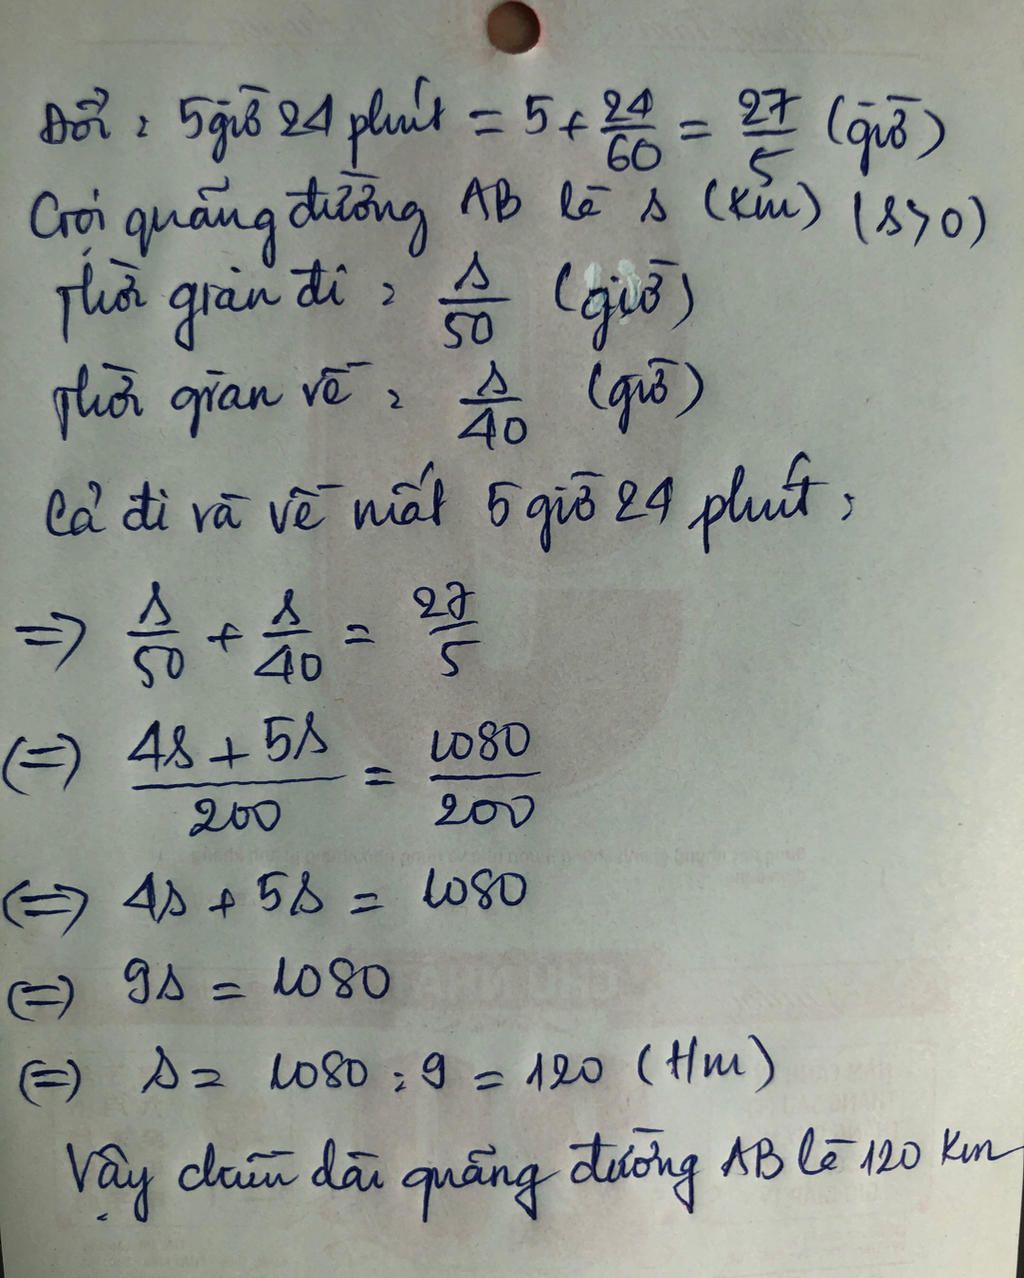 Đổi : 5 giờ 24 phút = 5 + 24/60 = 27/5 (giờ)
Gọi quãng đường AB là s (km) (s > 0)
Thời gian đi : s/50 (giờ)
Thời gian về : s/40 (giờ)
Cả đi và về mất 5 giờ 24 phút :
=> s/50 + s/40 = 27/5
(=) (4s + 5s)/200 = 1080/200
(=) 4s + 5s = 1080
(=) 9s = 1080
(=) s = 1080 : 9 = 120 (km)
Vậy chiều dài quãng đường AB là 120 km